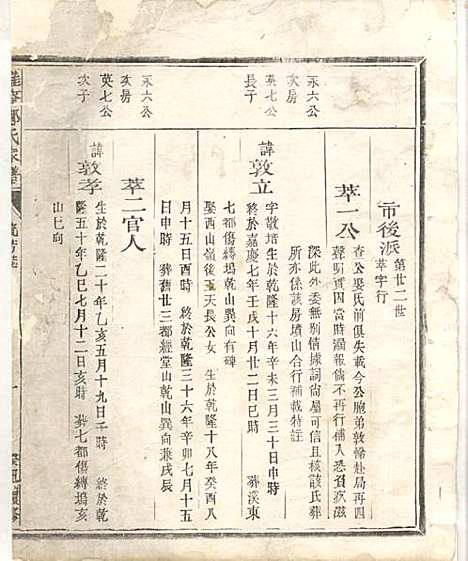 市後派 第廿二世
萃字行
永六公
次房
英七公
長子
萃一公
查公娶氏前俱失載今公胞弟敦歸赴局再四
聲明實因當時漏報倘不再行補入恐貽孜滋
深此外委無別情據詞尚屬可信且核該氏葬
所亦係該房墳山合行補載特註
諱敦立
字敬培生於乾隆十六年辛未三月三十日申時
終於嘉慶七年壬戌十月廿二日巳時 葬溪東
七都傷縛塢乾山巽向有碑
娶西山嶺後王天長公女 生於乾隆十八年癸酉八
月十五日酉時 終於乾隆三十六年辛卯七月十五
日申時 葬舊廿三都經堂山乾山巽向兼戌辰
永六公
次房
英七公
次子
萃二官人
諱敦孝
生於乾隆二十年乙亥五月十九日子時 終於乾
隆五十年乙巳七月十二日亥時 葬七都傷縛塢亥
山巳向
氏家譜